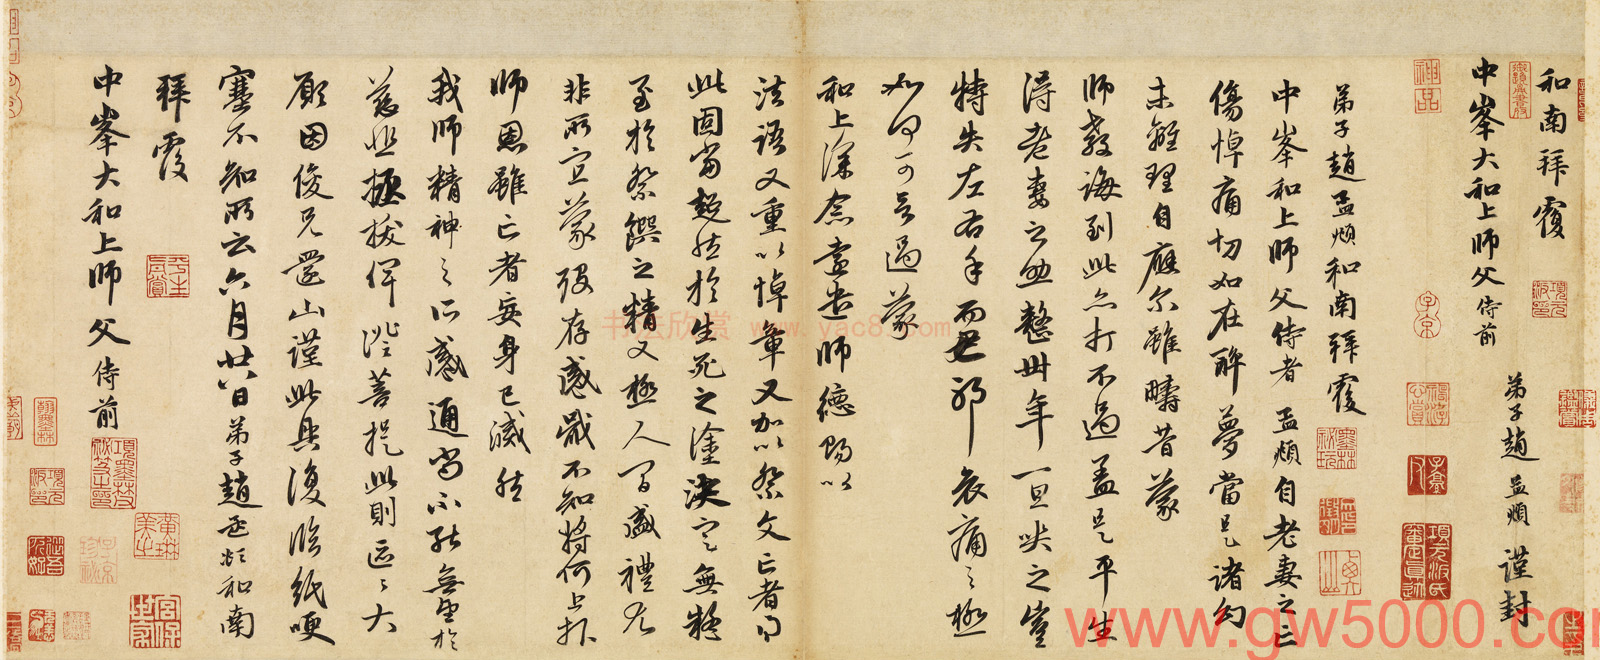 和南拜覆
中峯大和上師父侍前
弟子趙孟頫謹封
弟子趙孟頫和南拜覆
中峯和上師父侍者孟頫自老妻之亡
傷悼痛切如在醉夢當是諸幻
未離理自應尔雖疇昔蒙
師教誨到此亦打不過蓋是平生
得老妻之助整卅年一旦哭之豈
特失左右手而已耶哀痛之極
如何可言過蒙
和上深念遠書師德賜以
法語又重以悼章又加以祭文亡者得
此固當超然於生死之塗決定無疑
至於祭饌之精又極人間盛禮尤
非所宜蒙歿存感戴不知將何上報
師恩雖亡者妄身已滅然
我師精神之所感通尚不能無望於
慈悲拯拔俾證菩提此則區區大
願因俊兄還山謹此具復臨紙哽
塞不知所云六月廿八日弟子趙孟頫和南
拜覆
中峯大和上師父侍前
神品
子京
书法欣赏 www.yac8.com
www.gw5000.com